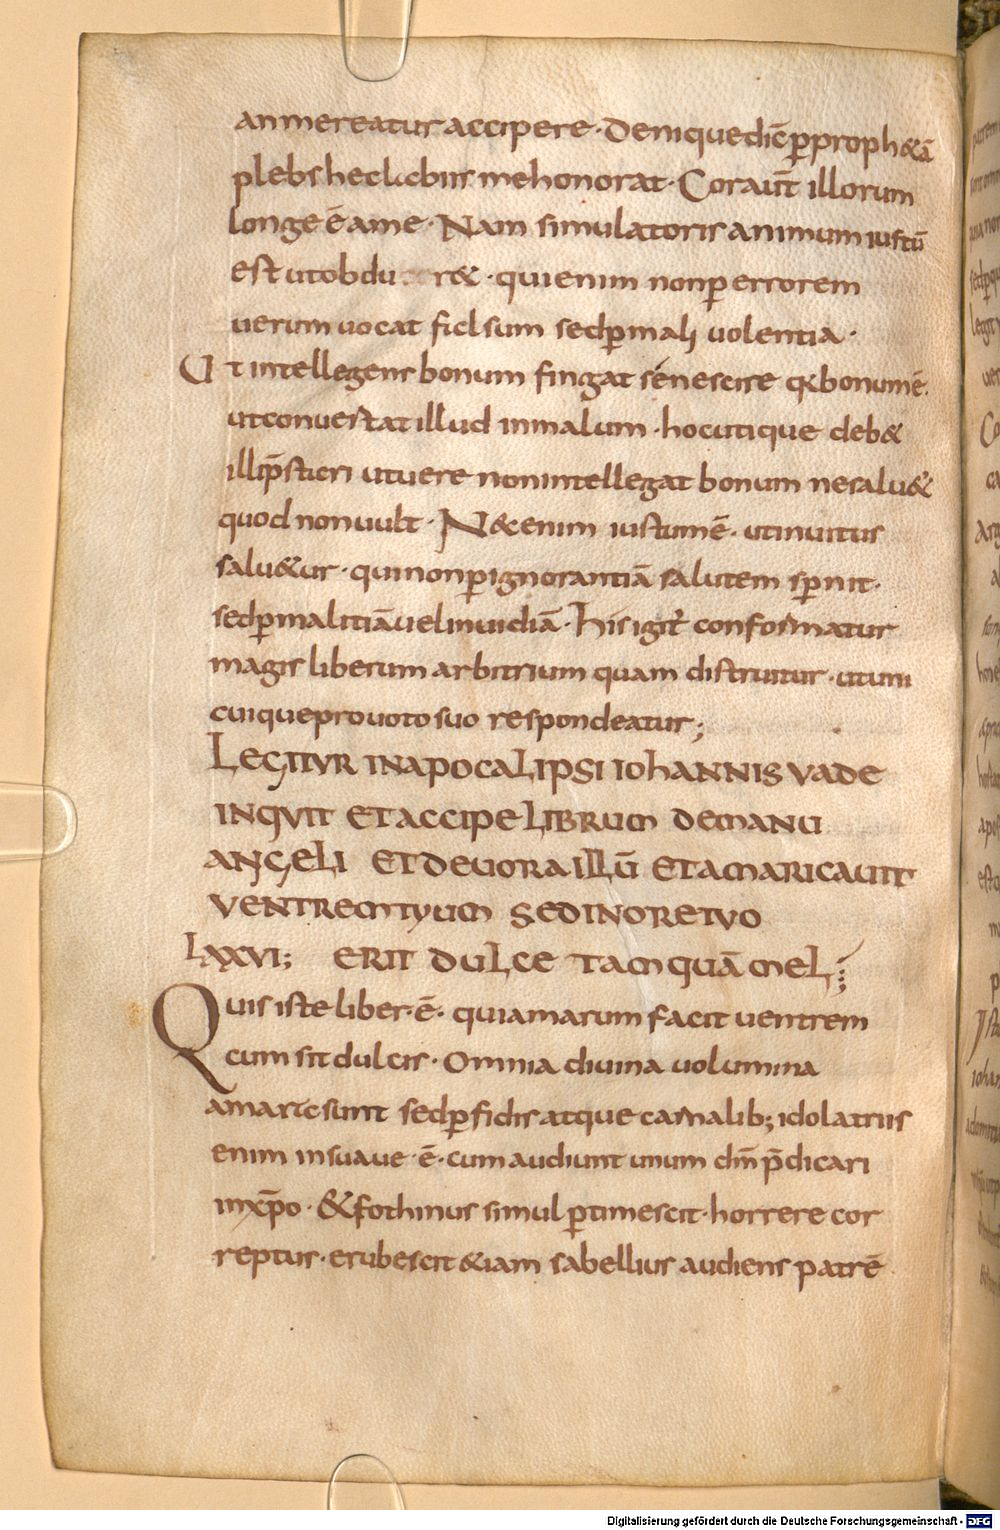 an mereatur accipere · Denique dic̄ ꝑ proph&ā
plebs hec labiis me honorat · Cor aut̄ illorum
longe ē a me · Nam simulatoris animum iustū
est ut obdu r& · qui enim non ꝑ errorem
uerum uocat falsum sed ꝑ mali uolentia ·
Ut intellegens bonum fingat sé nescire qđ bonum ē ·
ut conuertat illud in malum · hoc utique deb&
illi p̄stari ut uere non intellegat bonum ne salu&
quod non uult · N& enim iustum ē · ut inuitus
salu&ur · qui non ꝑ ignorantiā salutem sꝑnit ·
sed ꝑ malitiā uel inuidiā · his igit᷑ conformatur
magis liberum arbitrium quam distruitur · ut uni
cuique pro uoto suo respondeatur ;
LEGITVR IN APOCALIPSI IOHANNIS VADE
INQVIT ET ACCIPE LIBRUM DE MANU
ANGELI ET DEUORA ILLŪ ET AMARICAUIT
VENTREM TUUM SED IN ORE TVO
LXXVI; ERIT DULCE TAMQUĀ MEL;
Quis iste liber · ē · qui amarum facit uentrem
cum sit dulcis · Omnia diuina uolumina
amara sunt sed ꝑfidis atque carnalib; idolatriis
enim insuaue · ē · cum audiunt unum dm̄ p̄dicari
in xp̄o · & fothinus simul ꝑtimescit · horrere cor
reptus · erubescit &iam sabellius audiens patrē
Digitalisierung gefördert durch die Deutsche Forschungsgemeinschaft - DFG